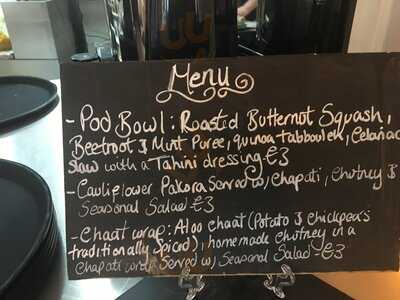 Menu
- Pod Bowl: Roasted Butternut Squash,
Beetroot & Mint Puree, quinoa tabbouleh, Celariac
slaw with a Tahini dressing £3
- Cauliflower Pakora Served w/ Chapati, Chutney &
Seasonal Salad £3
- Chaat wrap: Aloo chaat (Potato & chickpeas
traditionally spiced), homemade chutney in a
Chapati wrap Served w/ Seasonal Salad - £3